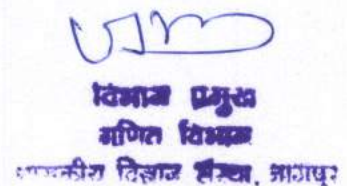 विभाग प्रमुख
गणित विभाग
शासकीय विज्ञान संस्था, नागपूर